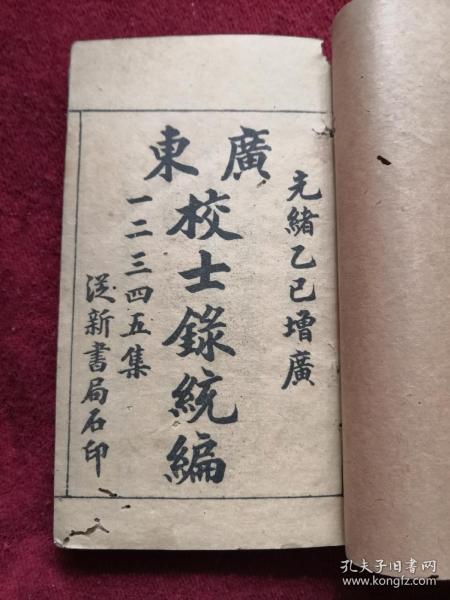 光緒乙巳增廣
廣東
校士錄統編
一二三四五集
從新書局石印
孔夫子旧书网
www.kongfz.com